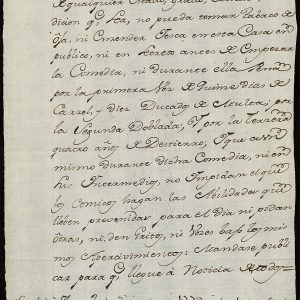 dicion q.e sea, no pueda tomar tabaco de
oja, ni encender Yesca en esta Casa en
publico, ni en secreto antes de empezar
la Comedia, ni durante ella Pena
por la primera Vez de quince Dias de
Carzel, y diez Ducados de Multa, por
la Segunda Doblada, Y por la Terzera
quatro años de Destierro, Y que assi
mismo durante dicha Comedia, ni en
sus Intermedios, no Impidan el que
los Comicos, hagan las Abilidades que
lleben prevenidas para el Dia ni pidan
otras, ni den Gritos, ni Vozes bajo los mis
mos Apercivimientos: Mandase publi
car para q.e llegue à Noticia de todos